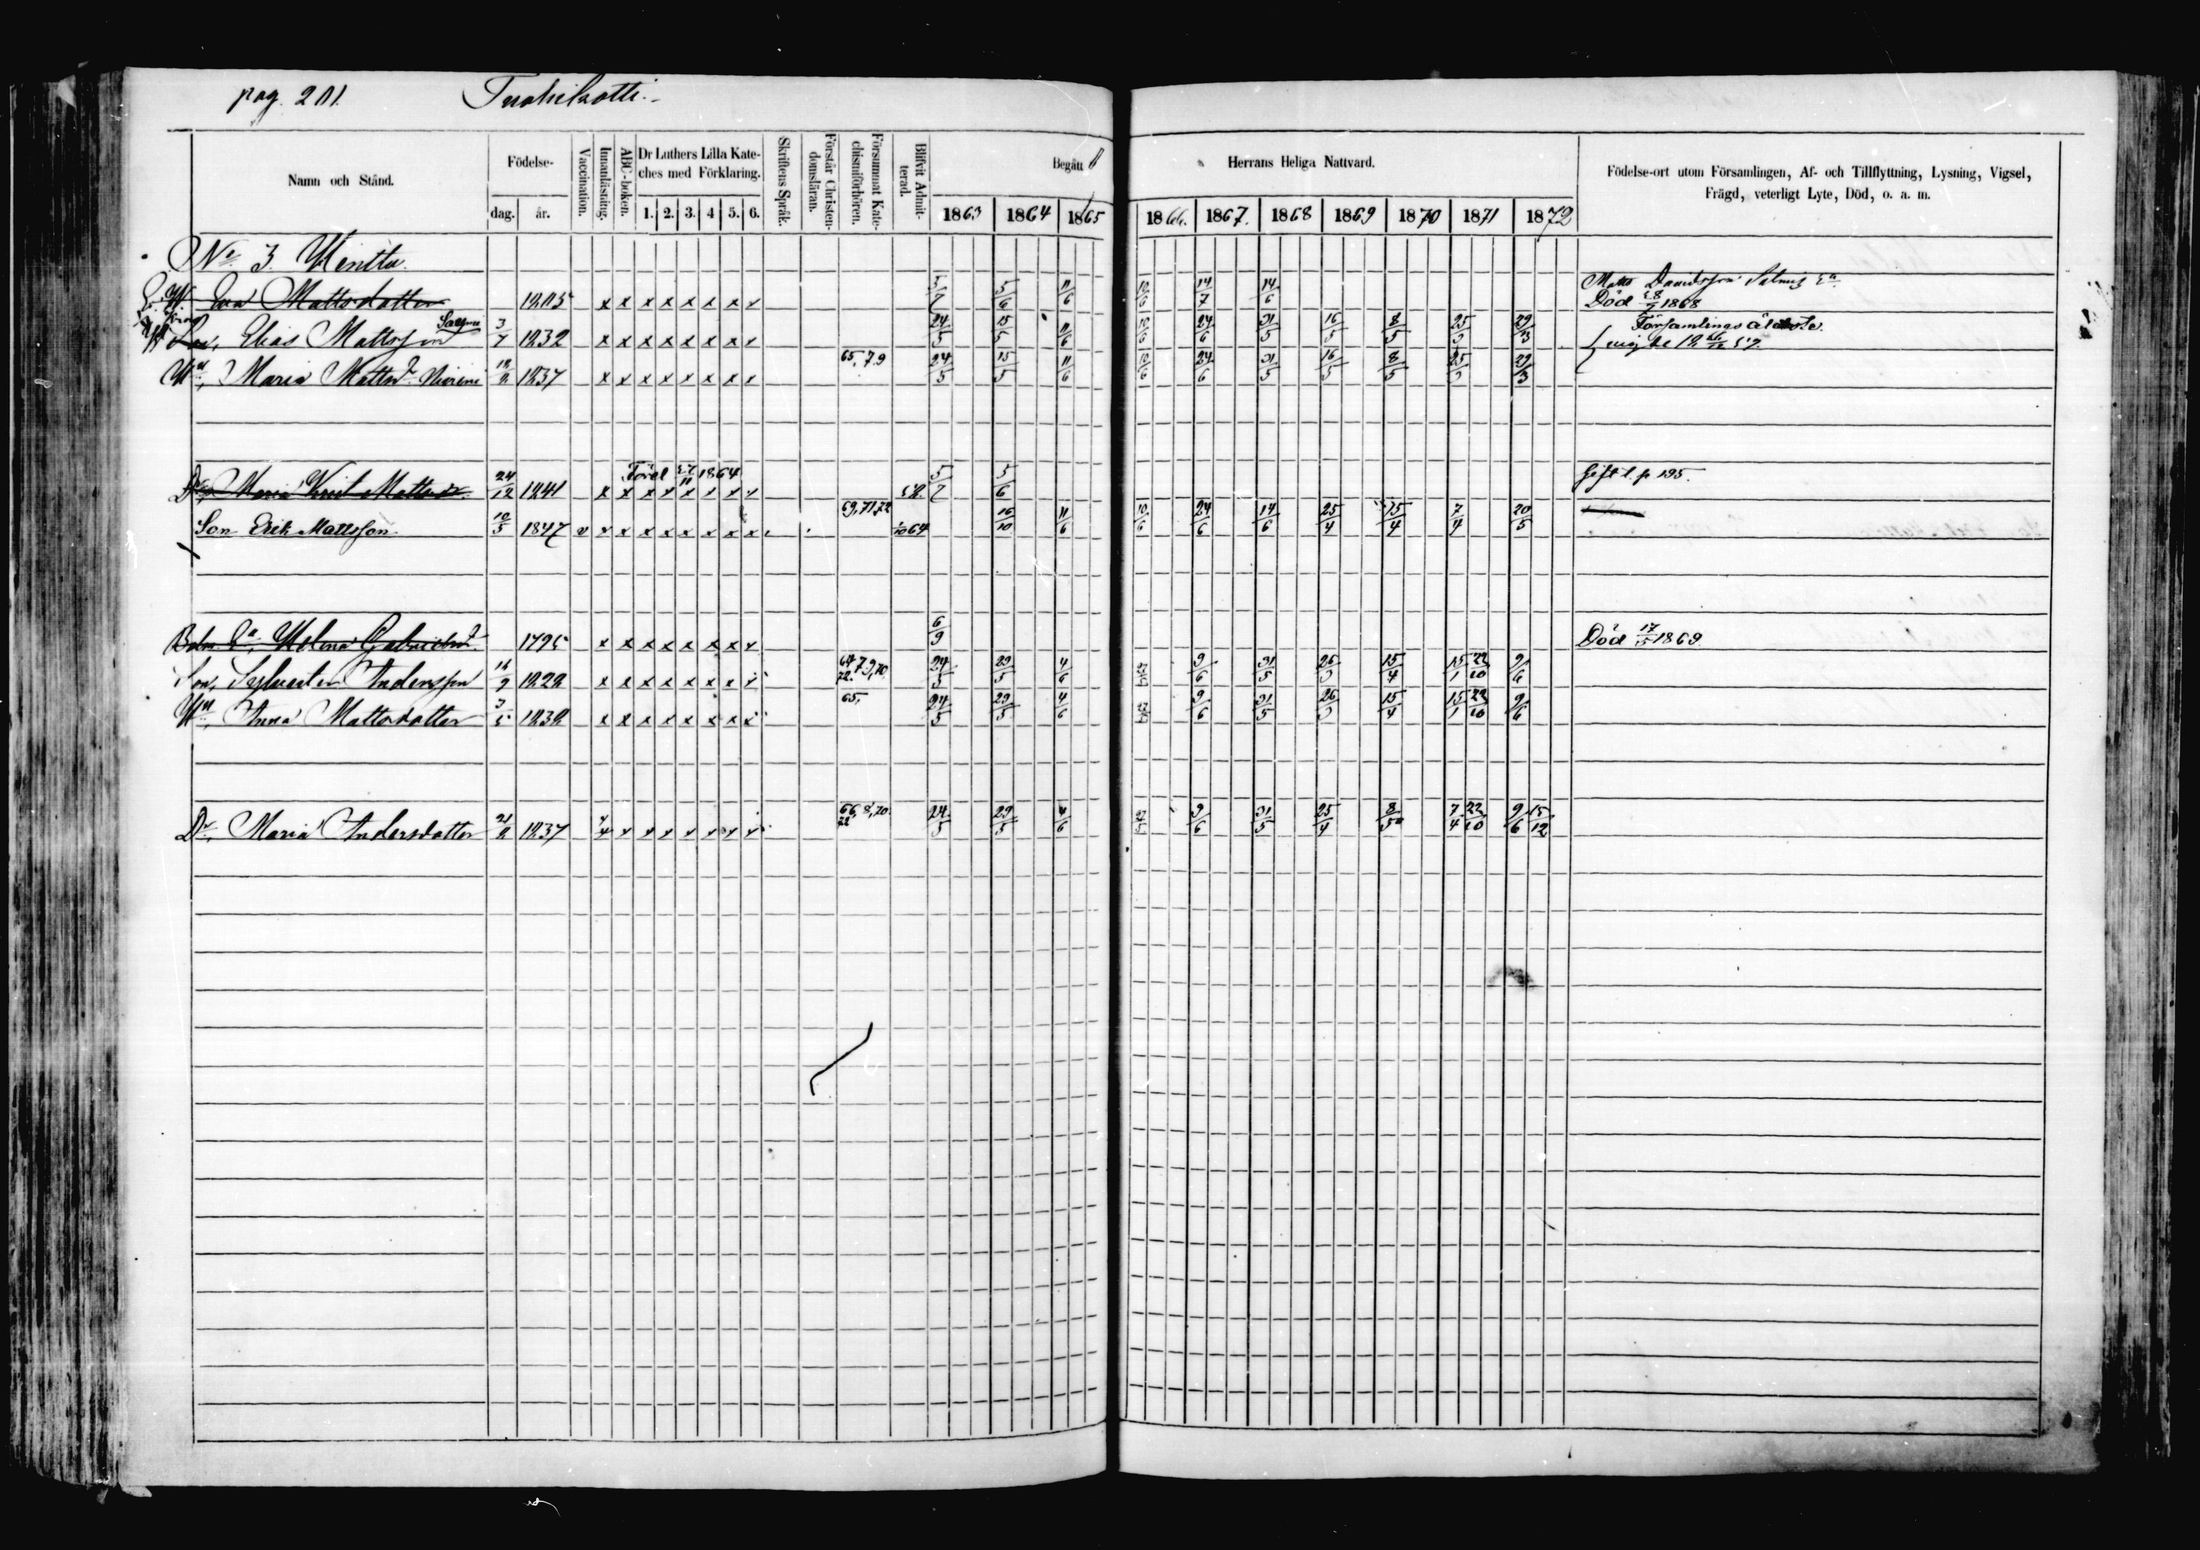 pag. 201. Tuohikotti.
Namn och Stånd. Födelse- dag. år. Vaccination. Innanläsning. ABC-boken. Dr Luthers Lilla Kateches med Förklaring. 1. 2. 3. 4 5. 6. Skriftens Språk. Förstår Christendomsläran. Försummat Katechismiförhören. Blifvit Admitterad. Begått Herrans Heliga Nattvard. Födelse-ort utom Församlingen, Af- och Tillflyttning, Lysning, Vigsel, Frägd, veterligt Lyte, Död, o. a. m.
1863 1864 1865 1866. 1867. 1868 1869 1870 1871 1872
No 3. Mentta.
Eva Mattsdotter 1805 x x x x x x x x 5/7 5/6 11/6 10/6 14/7 14/6 Matts Davidsson Död 1868
Son, Elias Mattsson 3/7 1832 x x x x x x x x 24/5 15/5 11/6 10/6 24/6 31/5 16/5 8/5 25/3 29/3 Församlings
Maria Mattsd. 1837 x x x x x x x x 65. 7.9 24/5 15/5 11/6 10/6 24/6 31/5 16/5 8/5 25/3 29/3
Dr, Maria Krist. Mattsd. 24/12 1841 x x x x x x x x 1864 5/7 5/6 Gift t. p. 195.
Son Erik Mattsson 10/5 1847 v x x x x x x x x 69, 71, 72 1/10 64 16/10 11/6 10/6 24/6 14/6 25/4 15/4 7/4 20/5
Helena Gabrielsd. 1795 x x x x x x x x 6/9 Död 17/5 1869
Son, Sylvester Andersson 16/9 1822 x x x x x x x x 24/5 29/5 4/6 9/6 31/5 26/3 15/4 15/1 22/10 9/6
Anna Mattsdotter 3/5 1832 x x x x x x x x 65, 24/5 29/5 4/6 9/6 31/5 26/3 15/4 15/1 22/10 9/6
Dr, Maria Andersdotter 21/2 1837 x x x x x x x x 66, 8, 70. 72 24/5 29/5 4/6 9/6 31/5 25/4 8/5 7/4 22/10 9/6 15/12